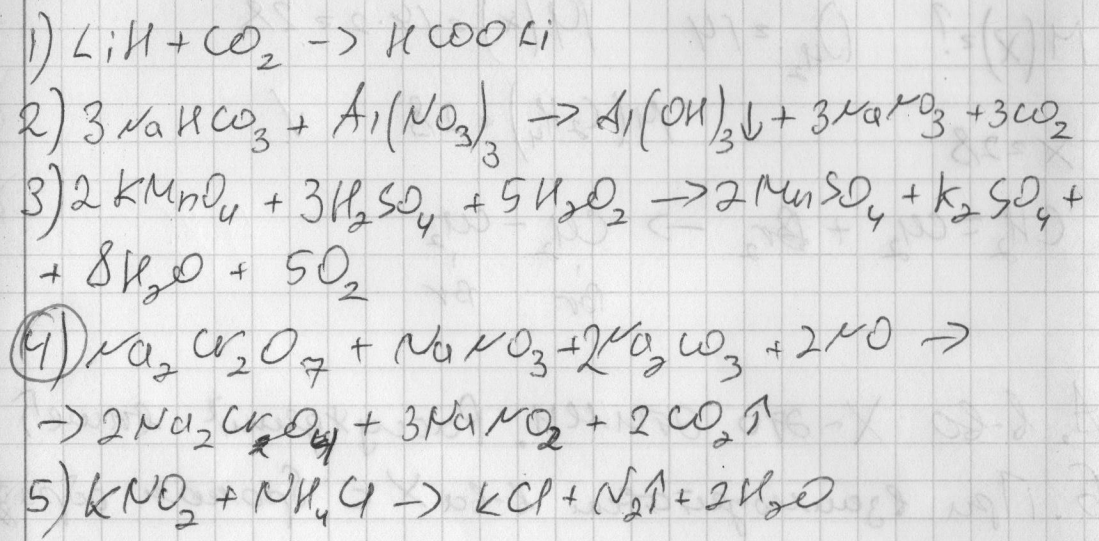 1) LiH + CO₂ → HCOOLi
2) 3NaHCO₃ + Al(NO₃)₃ → Al(OH)₃↓ + 3NaNO₃ + 3CO₂
3) 2KMnO₄ + 3H₂SO₄ + 5H₂O₂ → 2MnSO₄ + K₂SO₄ +
+ 8H₂O + 5O₂
4) Na₂Cr₂O₇ + NaNO₃ + 2Na₂CO₃ + 2NO →
→ 2Na₂CrO₄ + 3NaNO₂ + 2CO₂↑
5) KNO₂ + NH₄Cl → KCl + N₂↑ + 2H₂O